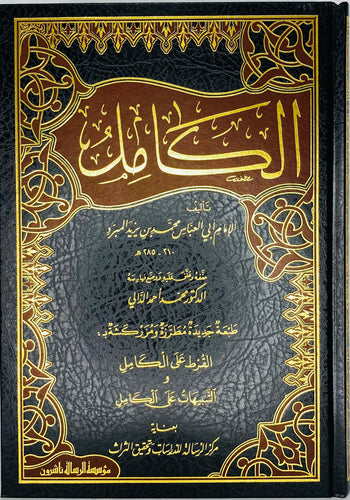 الكَامِلُ
تأليف
الإمام أبي العبّاس محمد بن يزيد المبرد
٢١٠ - ٢٨٥ هـ
حققه وعلق عليه ووضع فهارسه
الدكتور محمد أحمد الدالي
طبعة جديدة مطرزة ومزركشة بـ :
القرط على الكامل
و
التنبيهات على الكامل
بعناية
مركز الرسالة للدراسات وتحقيق التراث
مؤسسة الرسالة ناشرون